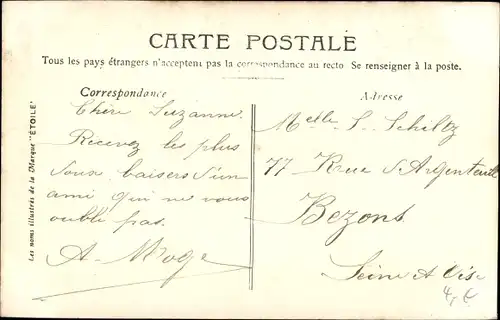 CARTE POSTALE
Tous les pays étrangers n'acceptent pas la correspondance au recto Se renseigner à la poste.
Correspondance
Adresse
Les noms illustrés de la Marque "ETOILE"
Chère Suzanne.
Recevez les plus
doux baisers d'un
ami qui ne vous
oubli pas.
Melle S. Schiltz
77 Rue d'Argenteuil
Bezons
Seine et Oise